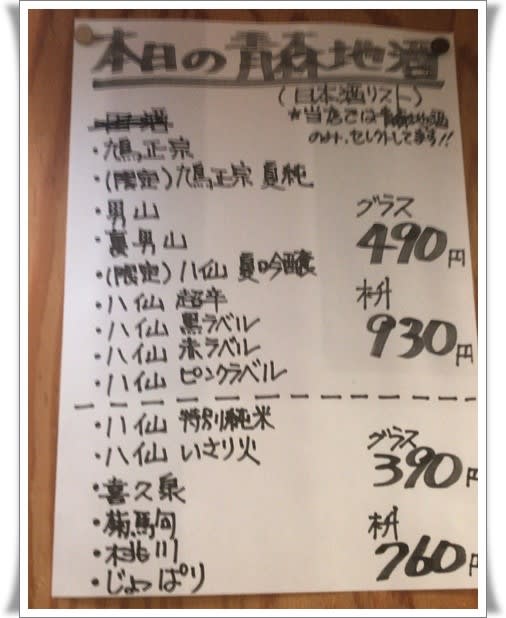 本日の青森地酒
(日本酒リスト)
★当店では青森地酒
のみ、セレクトしてます!!
田酒
・鳩正宗
・(限定)鳩正宗 夏純
・男山
・裏男山
・(限定)八仙 夏吟醸
・八仙 超辛
・八仙 黒ラベル
・八仙 赤ラベル
・八仙 ピンクラベル
グラス
490円
枡
930円
・八仙 特別純米
・八仙 いさり火
・喜久泉
・菊駒
・桃川
・じょっぱり
グラス
390円
枡
760円